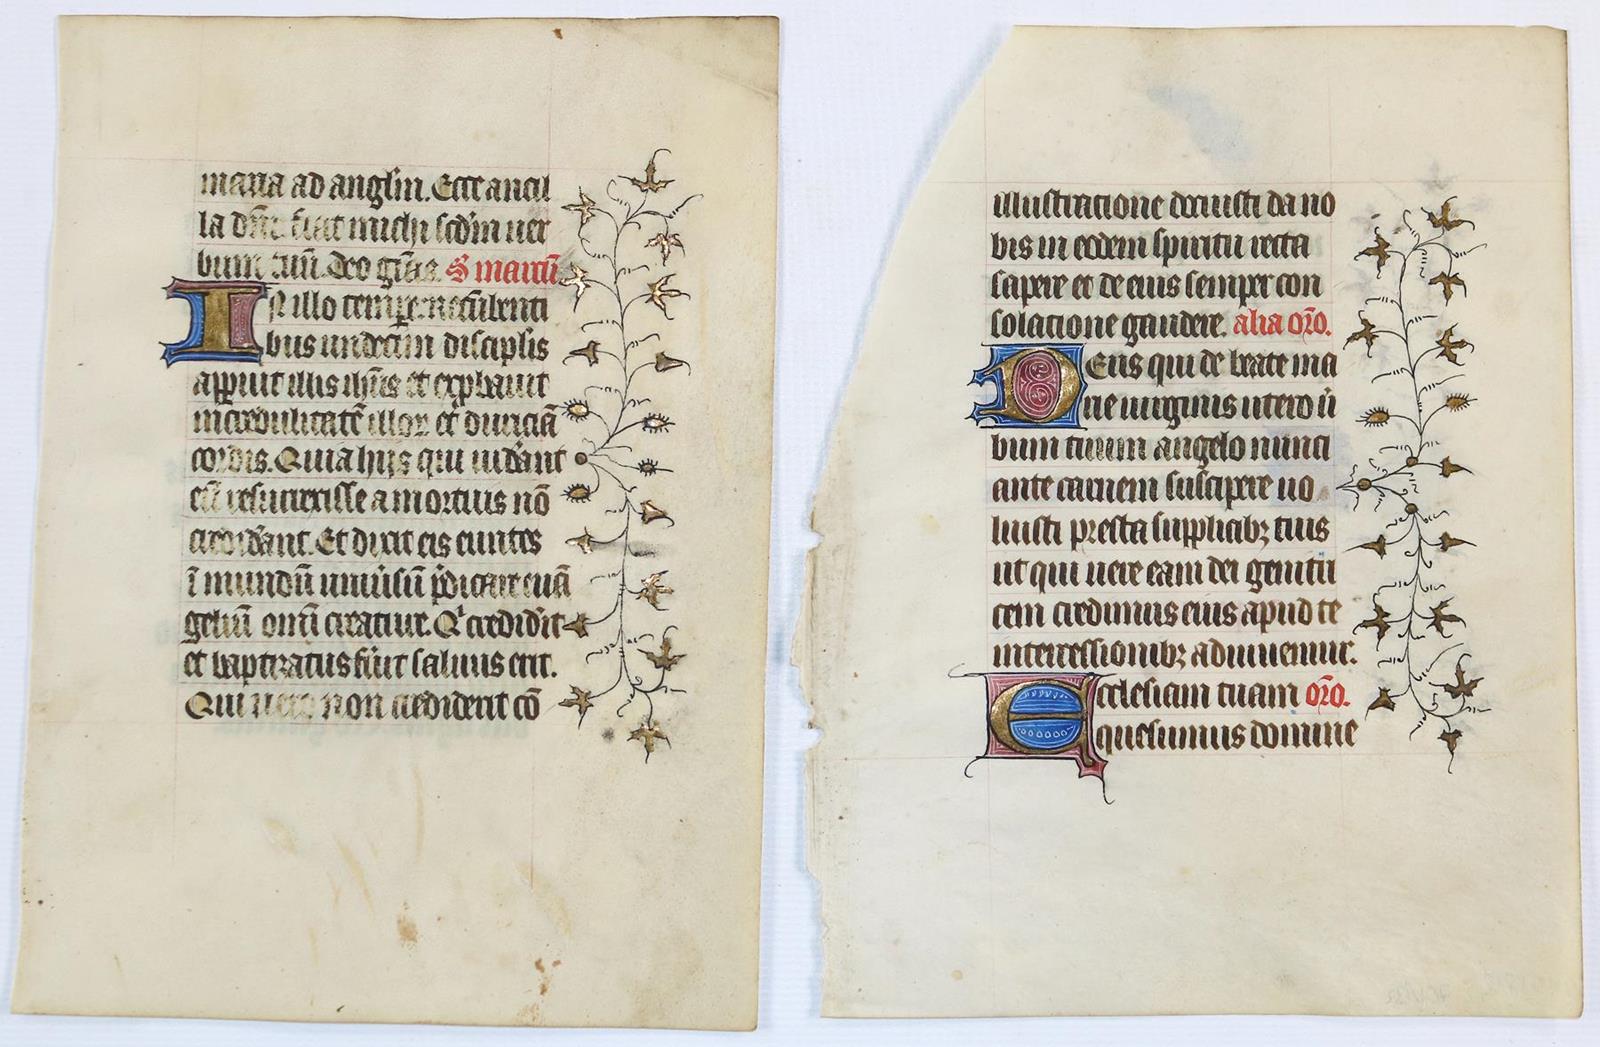 maria ad angłm. Ecce ancil
la dñi fiat michi scđm uer
bum tuũ. Deo grãs. S marcũ
IN illo tempe. recũbenti
bus undecim discip̃lis
apparuit illis ih̃us et exprbauit
incredulitatẽ illoꝝ et duriciã
cordis. Quia hijs qui uiđant
eũ resurrexisse a mortuis nõ
crediđant. Et dixit eis euntes
ĩ mundũ uniũsũ p̃dicate euã
geliũ om̃i creature. Qͥ crediđit
et baptizatus fũit saluus erit.
Qui uero non crediderit cõ
illustratione docuisti da no
bis in eodem spiritu recta
sapere et de eius semper con
solatione gaudere. alia orõ.
Deus qui de beate ma
rie uirginis utero ũ
bum tuum angelo nunci
ante carnem suscipere uo
luisti presta supplicibꝫ tuis
ut qui uere eam dei genitĩ
cem credimus eius apud te
intercessionibꝫ adiuuemur.
Ecclesiam tuam orõ.
quesumus domine